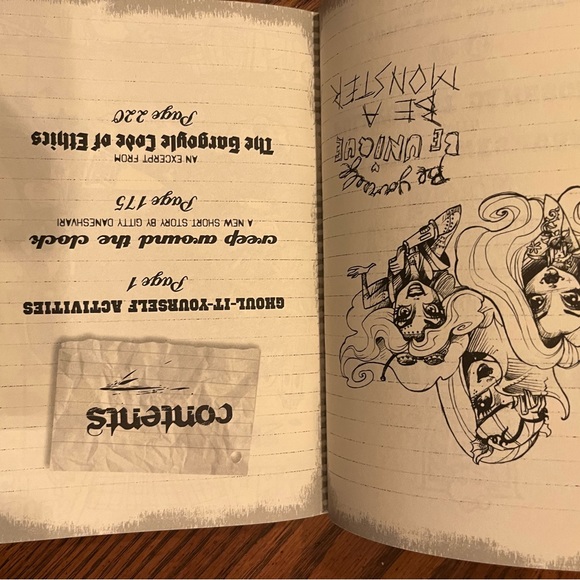 contents
GHOUL-IT-YOURSELF ACTIVITIES
Page 1
creep around the clock
A NEW SHORT STORY BY GITTY DANESHVARI
Page 175
AN EXCERPT FROM
The Gargoyle Code of Ethics
Page 220
Be yourself
BE UNIQUE
BE A
MONSTER